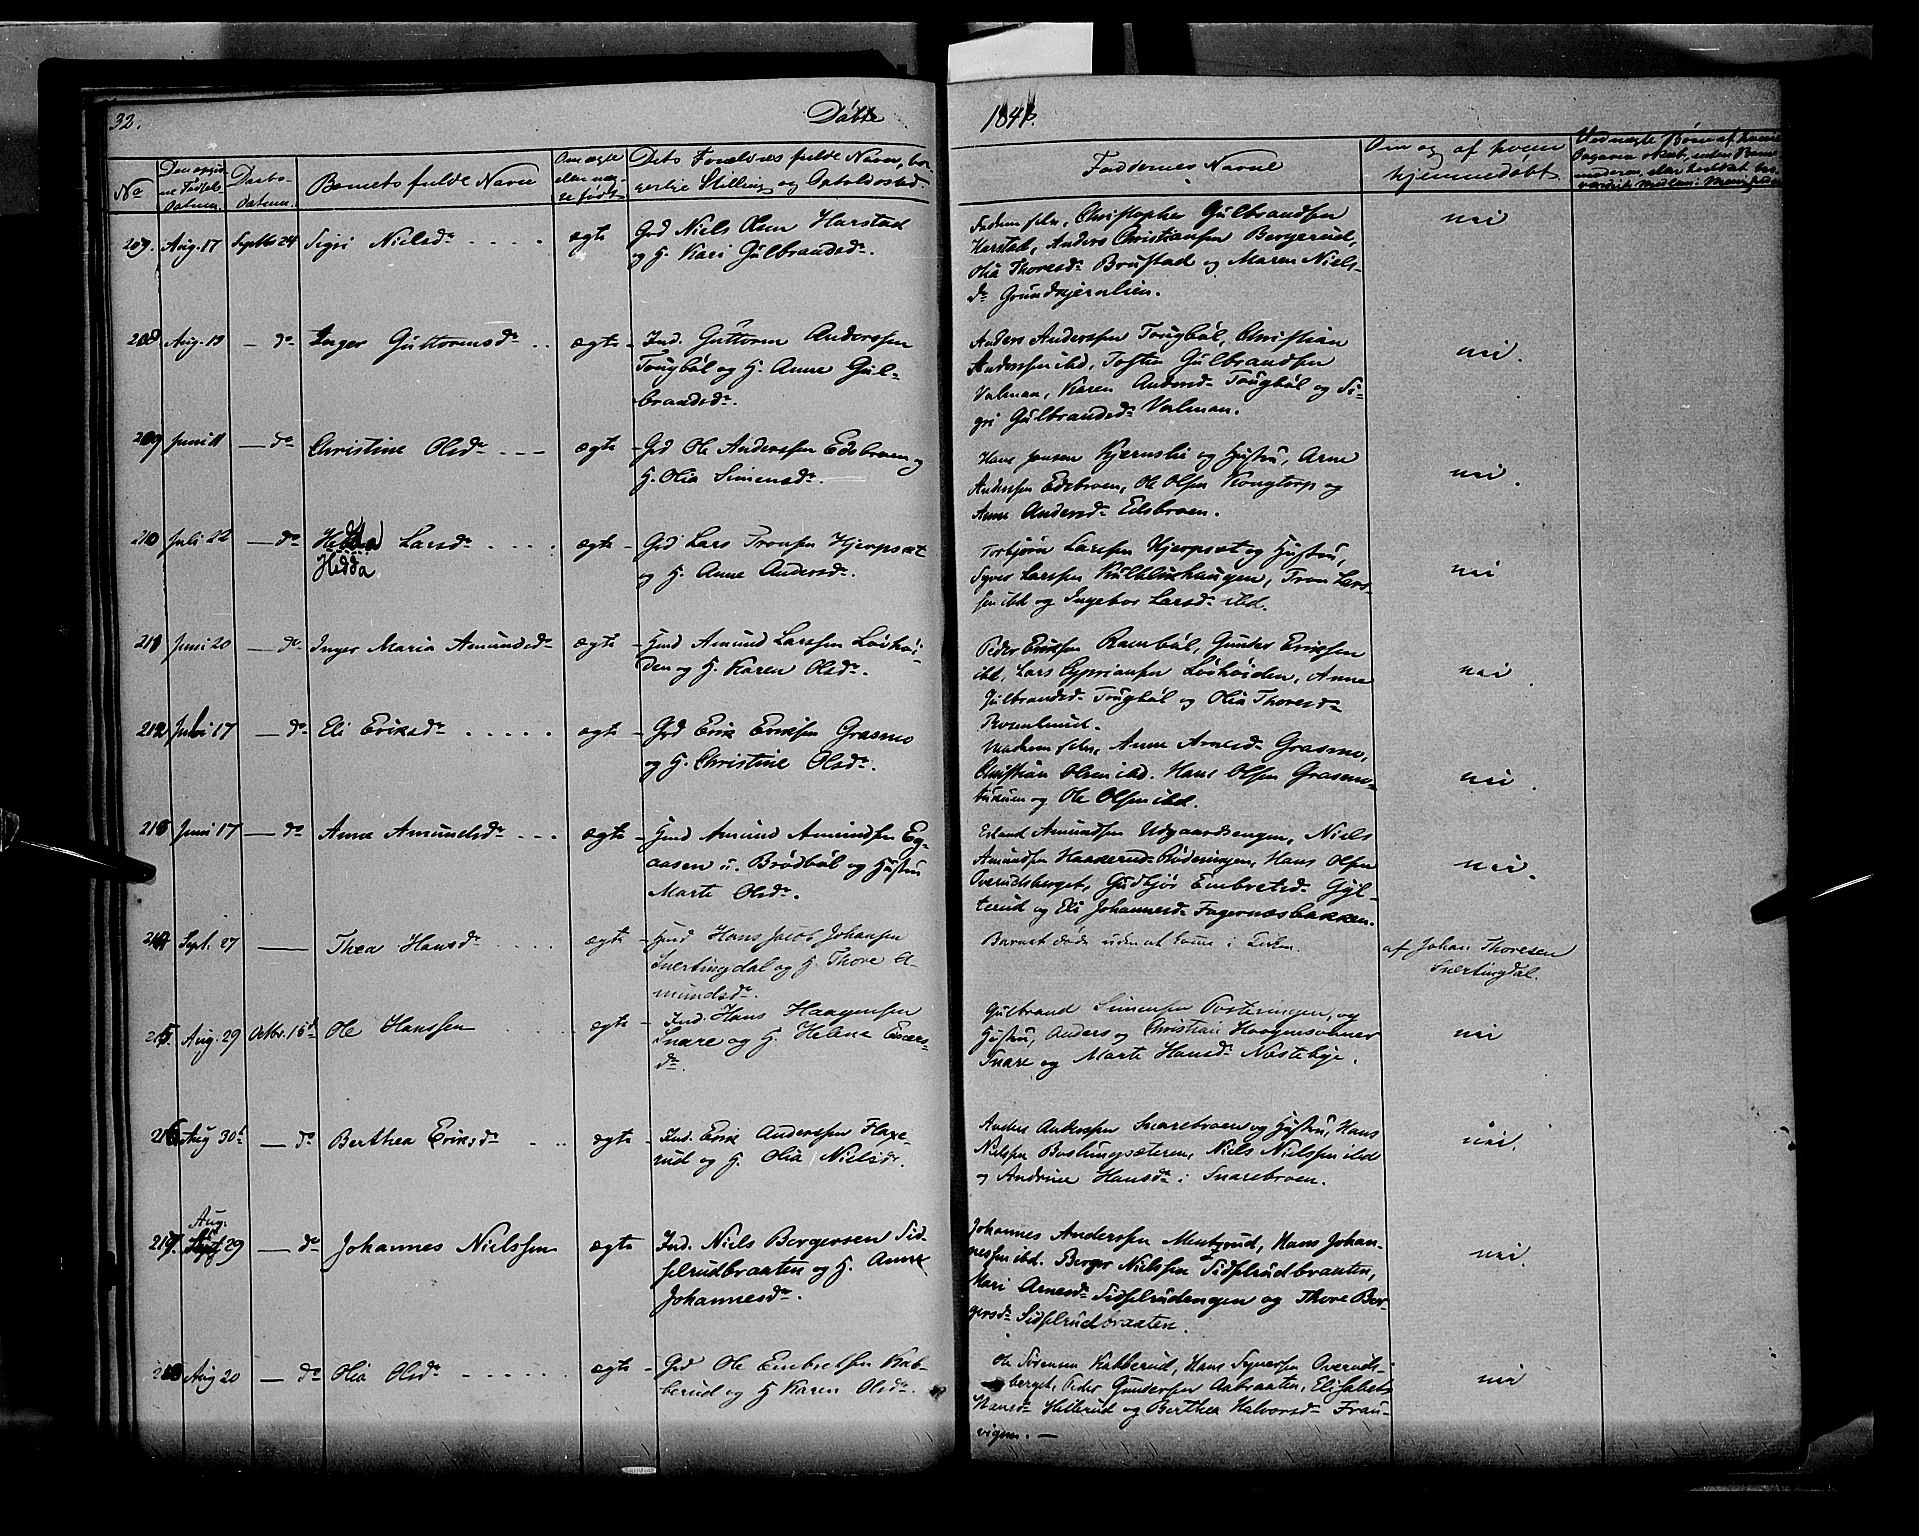 32.
Døbte
1841.
No
Barnets fulde Navn
Faddernes Navne
Om og af hvem
hjemmedøbt.
209. Aug. 17 Septb 24 Sigri Nielsdr . . . . ægte Grd Niels Olsen Harstad
og H. Kari Gulbrandsdr.
Faderen selv, Christopher Gulbrandsen
Harstad, Anders Christiansen Bergerud,
Olia Thoresdr Brustad og Maren Niels-
dr Grundtjernlien.
nei
208 Aug. 19 — do Inger Guttormsdr . . ægte Ind. Guttorm Anderssen
Tougbøl og H. Anne Gul-
brandsdr.
Anders Anderssen Tougbøl, Christian
Anderssen ibd, Tosten Gulbrandsen
Valman, Karen Andersdr Tougbøl og Si-
gri Gulbrandsdr Valman.
nei.
209 Juni 11 — do Christine Olsdr . . . ægte Grd Ole Anderssen Edsbroen og
H. Olia Simensdr.
Hans Jensen Kjernsli og Hustru, Arne
Anderssen Edsbroen, Ole Olsen Kongtorp og
Anne Andersdr Edsbroen.
nei.
210 Juli 22 — do Hedda Larsdr . . . . ægte Grd Lars Tronsen Hjerpsæt
Hedda
og H. Anne Andersdr.
Torbjørn Larssen Hjerpsæt og Hustru,
Syver Larssen Kulblikhaugen, Tron Lars-
sen ibd og Ingebor Larsdr ibd.
nei
211 Juni 20 — do Inger Maria Amundsdr ægte Hmd Amund Larssen Løvhøi-
den og H. Karen Olsdr.
Peder Eriksen Rambøl, Gunder Eriksen
ibd, Lars Cyprianssen Løvhøiden, Anne
Gulbrandsd Tougbøl og Olia Thoresdr
nei.
212 Juli 17 — do Eli Eriksdr . . . . . ægte Grd Erik Eriksen Grasmo
og H. Christine Olsdr.
Moderen selv, Anne Arnesdr Grasmo,
Christian Olsen ibd. Hans Olsen Grasmo-
og Ole Olsen ibd.
nei.
213 Juni 17 — do Anne Amundsdr . . . ægte Hmd Amund Amundsen Eg-
aasen u. Brødbøl og Hustru
Marte Olsdr.
Erland Amundsen Udgaardsengen, Niels
Amundsen Haakerud-Rødningen, Hans Olsen
Overudsberget, Gudbjør Embretsdr Gyl-
terud og Eli Johannesdr Fagernæsbakken.
nei.
214 Sept. 27 — Thea Hansdr . . . . ægte Hmd Hans Jacob Johansen
Snertingdal og H. Thore A-
mundsdr.
Barnet døde uden at komme i Kirken.
af Johan Thoresen
Snertingdal.
215 Aug. 29 Octbr. 15d Ole Hanssen . ægte Ind. Hans Haagensen
Snare og H. Helene Eivers-
dr.
Gulbrand Simensen og
Hustru, Anders og Christian Haagenssønner
Snare og Marte Hansdr Næstebye.
nei
216 Aug 30d — do Berthea Eriksdr . . ægte Ind. Erik Anderssen Flaxe-
rud og H. Olia Nielsdr.
Anders Anderssen Snarebroen og Hustru, Hans
Nielssen Bastungsæteren, Niels Nielssen ibd
og Andrine Hansdr i Snarebroen.
nei.
Aug.
217 Sept 29 — do Johannes Nielssen ægte Ind. Niels Bergersen Sid-
selrudbraaten og H. Anne
Johannesdr.
Johannes Anderssen Mentzrud, Hans Johan-
nessen ibd. Berger Nielssen Sidselrudbraaten,
Mari Arnesdr Sidselrudengen og Thore Ber-
gersdr Sidselrudbraaten.
nei.
218 Aug 20 — do Olia Olsdr . . . . . ægte Grd Ole Embretsen Kab-
berud og H Karen Olsdr.
Ole Sørensen Kabberud, Hans Syversen Overuds-
berget, Peder Gundersen Aabraaten, Elisabeth
Hansdr Hellerud og Berthea Halvorsdr Frau-
vigen. —
nei